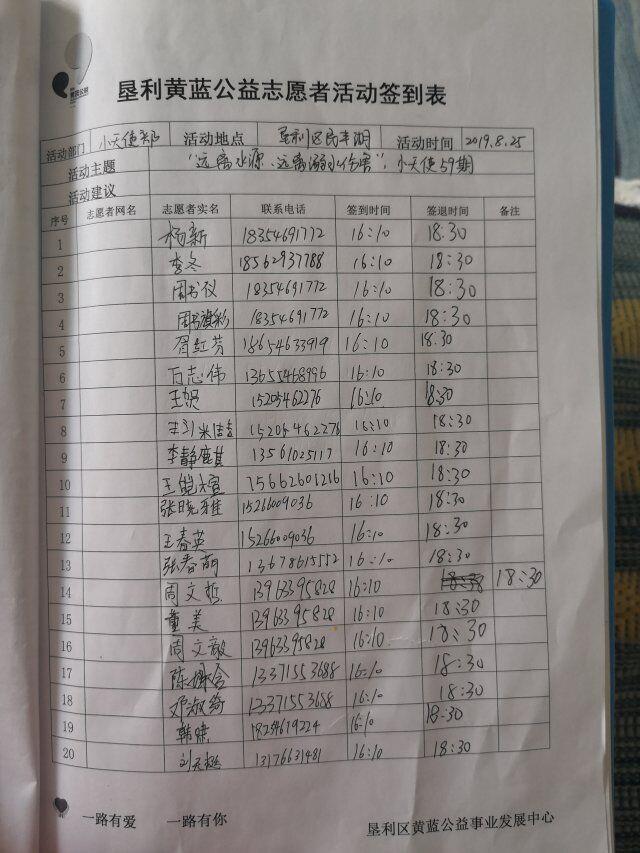 垦利黄蓝公益志愿者活动签到表
活动部门 小天使部 活动地点 垦利区民丰湖 活动时间 2019.8.25
活动主题 "远离水源、远离溺水伤害",小天使59期
活动建议
序号 志愿者网名 志愿者实名 联系电话 签到时间 签退时间 备注
1 杨新 18354691772 16:10 18:30
2 李冬 18562937788 16:10 18:30
3 周书仪 18354691772 16:10 18:30
4 18354691772 16:10 18:30
5 胥红芳 18654633919 16:10 18:30
6 百志伟 13655468996 16:10 18:30
7 15205462276 16:10 18:30
8 15205462276 16:10 18:30
9 13561025117 16:10 18:30
10 15662601216 16:10 18:30
11 张晓雅 15266009036 16:10 18:30
12 王春英 15266009036 16:10 18:30
13 张春萌 13678615552 16:10 18:30
14 周文哲 13963395828 16:10 18:30
15 董美 13963395828 16:10 18:30
16 周文毅 13963395828 16:10 18:30
17 13371553688 16:10 18:30
18 邓淑绮 13371553688 16:10 18:30
19 18254619224 16:10 18:30
20 13176631481 16:10 18:30
一路有爱 一路有你
垦利区黄蓝公益事业发展中心